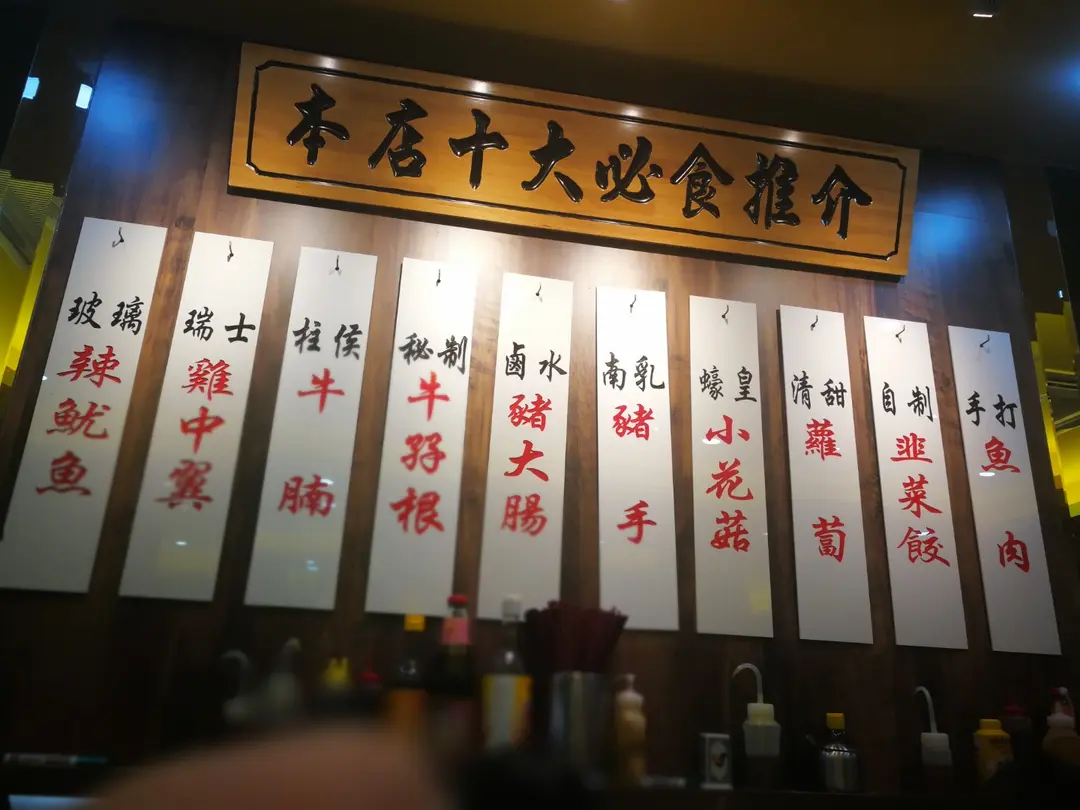 本店十大必食推介
玻璃
辣魷魚
瑞士
雞中翼
柱侯
牛腩
秘制
牛孖根
鹵水
豬大腸
南乳
豬手
蠔皇
小花菇
清甜
蘿蔔
自制
韭菜餃
手打
魚肉